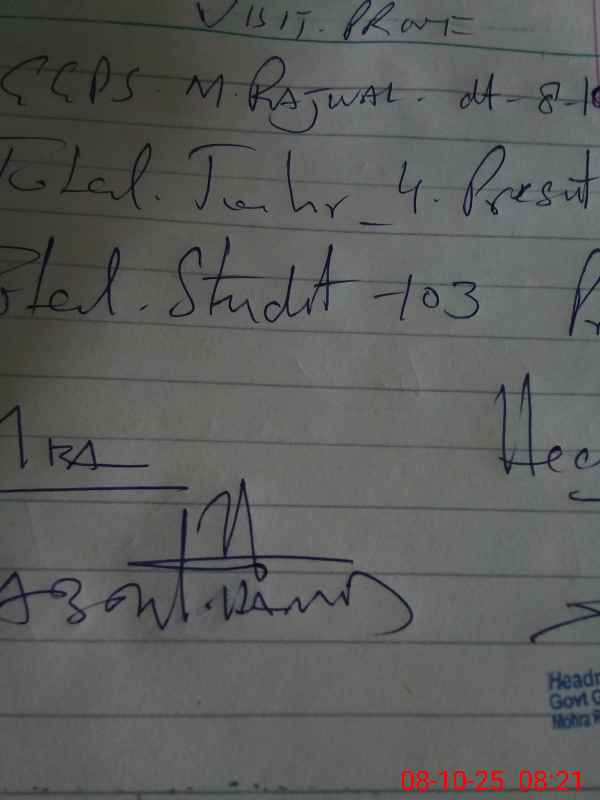 VISIT. PROVE
GGPS. M. RAJWAL. dt - 8-10
Total. Teahr - 4. Presut
Total. Studit - 103 Pr
MEA
Head
Headm
Govt G
Mohra R
08-10-25 08:21